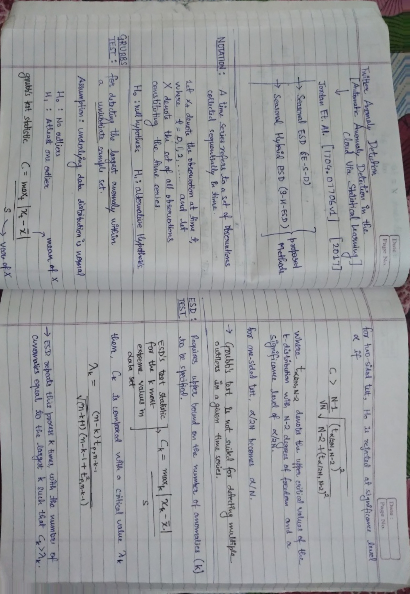 Twitter Anomaly Detection
[Automatic Anomaly Detection in the
Cloud Via Statistical Learning]
Jordan Et. Al. [1704.07706v1] [2017]
→ Seasonal ESD (S-ESD)
→ Seasonal Hybrid ESD (S-H-ESD)
proposed
Methods
NOTATION: A time series refers to a set of observations
collected sequentially in time
Let xt denote the observation at time t,
where t = 0,1,2... and let
X denote the set of all observations
constituting the time series
H0: null hypothesis H1: alternative Hypothesis
GRUBBS
TEST: for detecting the largest anomaly within
a univariate sample set.
Assumption: underlying data distribution is normal
H0: No outliers
H1: Atleast one outlier
grubb's test statistic C = maxt |xt - x̄| / s
mean of X
var of X
for two-sided test, H0 is rejected at significance level
α if
C > N-1 / √N √( (tα/2N,N-2)² / N-2+(tα/2N,N-2)² )
where tα/2N,N-2 denotes the upper critical values of the
t-distribution with N-2 degrees of freedom and a
significance level of α/2N
for one-sided test, α/2N becomes α/N.
→ Grubb's test is not suited for detecting multiple
outliers in a given time series.
ESD: Requires upper bound on the number of anomalies (k)
TEST to be specified.
ESD's test statistic
for the k most
extreme values in
data set
Ck = maxk |xk - x̄| / s
then, Ck is compared with a critical value λk
λk = (n-k) tp,n-k-1 / √((n-k-1+t²p,n-k-1)(n-k+1))
→ ESD repeats this process k times, with the number of
anomalies equal to the largest k such that Ck > λk.